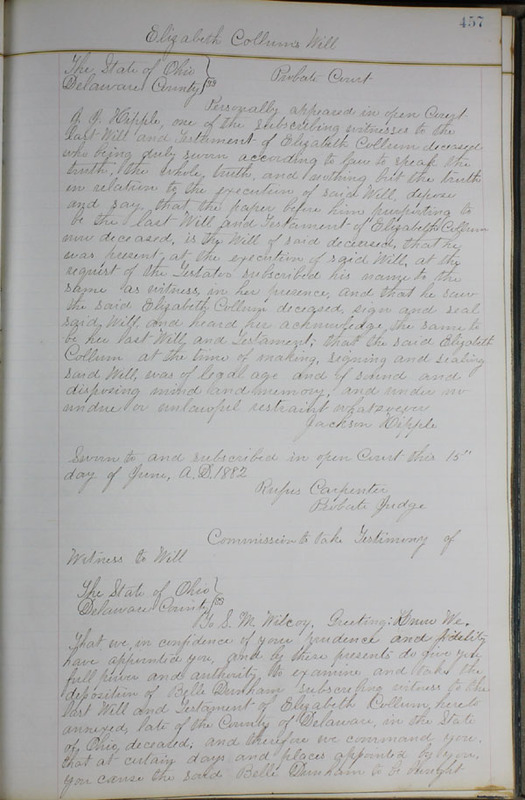 457
Elizabeth Collums Will
The State of Ohio } Probate Court
Delaware County } ss
Personally appeared in open Court
Hipple, one of the subscribing witnesses to the
last Will and Testament of Elizabeth Collum deceased
who being duly sworn according to law to speak the
truth, the whole truth, and nothing but the truth
in relation to the execution of said Will, depose
and say, that the paper before him purporting to
be the last Will and Testament of Elizabeth Collum
now deceased, is the Will of said deceased, that he
was present at the execution of said Will, at the
request of the Testator subscribed his name to the
same as witness, in her presence, and that he saw
the said Elizabeth Collum deceased, sign and seal
said Will, and heard her acknowledge the same to
be her last Will and Testament; that the said Elizabeth
Collum at the time of making, signing and sealing
said Will, was of legal age and of sound and
disposing mind and memory, and under no
undue or unlawful restraint whatsoever
Jackson Hipple
Sworn to and subscribed in open Court this 15"
day of June, A.D. 1882
Rufus Carpenter
Probate Judge
Commission to take Testimony of
Witness to Will
The State of Ohio }
Delaware County } ss
To S. M. Wilcoy. Greeting: Know We,
That we in confidence of your prudence and fidelity
have appointed you, and by these presents do give you
full power and authority to examine and take the
deposition of Belle Dunham subscribing witness to the
last Will and Testament of Elizabeth Collum, hereto
annexed, late of the County of Delaware, in the State
of Ohio, deceased; and therefore we command you,
that at certain days and places appointed by you,
you cause the said Belle Dunham to be brought